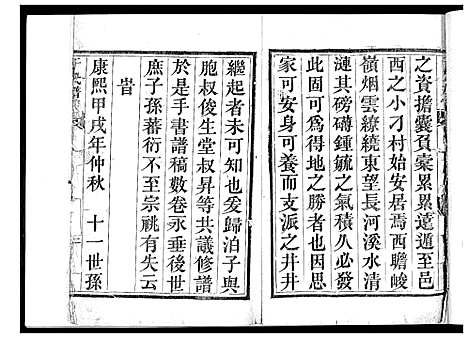 之資擔囊負橐累累遠遁至邑
西之小刁村始安居焉西瞻峻
嶺烟雲繚繞東望長河溪水清
漣其磅礴鍾毓之氣積久必發
此固可為得地之勝者也因思
家可安身可養而支派之井井
繼起者未可知也爰歸泊子與
胞叔俊生堂叔昇等共議修譜
於是手書譜稿數卷永垂後世
庶子孫蕃衍不至宗祧有失云
旹
康熙甲戌年仲秋 十一世孫